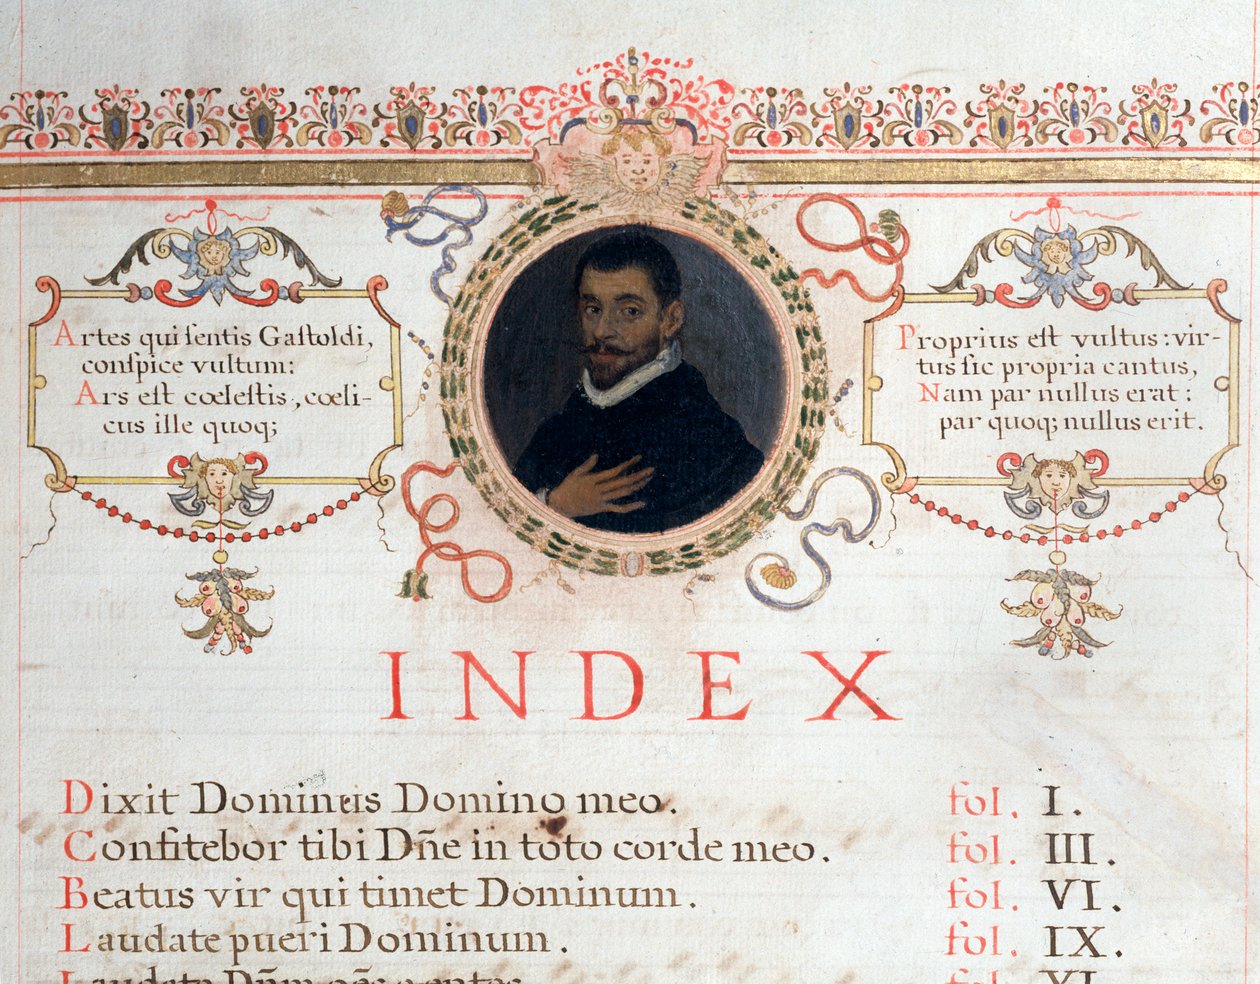 Artes qui sentis Gastoldi,
conspice vultum:
Ars est cœlestis, cœli-
cus ille quoq;
Proprius est vultus: vir-
tus sic propria cantus,
Nam par nullus erat:
par quoq; nullus erit.
INDEX
Dixit Dominus Domino meo. fol. I.
Confitebor tibi Dñe in toto corde meo. fol. III.
Beatus vir qui timet Dominum. fol. VI.
Laudate pueri Dominum. fol. IX.
Laudate Dñm oẽs gentes. fol. XI.